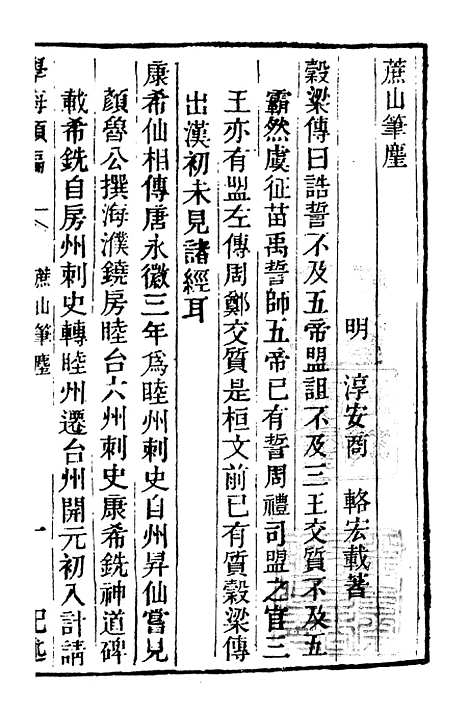 蔗山筆麈
明 淳安商 輅宏載著
穀梁傳曰誥誓不及五帝盟詛不及三王交質不及五
霸然虞征苗禹誓師五帝已有誓周禮司盟之官三
王亦有盟左傳周鄭交質是桓文前已有質穀梁傳
出漢初未見諸經耳
康希仙相傳唐永徽三年為睦州刺史自州昇仙嘗見
顏魯公撰海濮饒房睦台六州刺史康希銑神道碑
載希銑自房州刺史轉睦州遷台州開元初入計請
學海類編 蔗山筆麈 一 記述